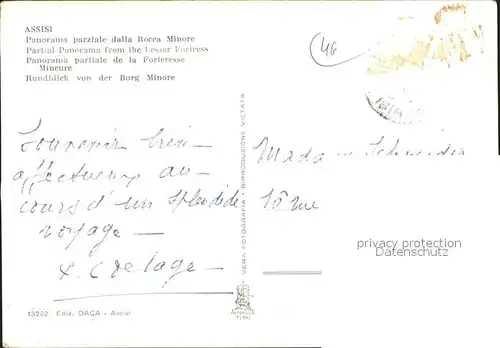 ASSISI
Panorama parziale dalla Rocca Minore
Partial Panorama from the Lesser Fortress
Panorama partiale de la Forteresse
Mineure
Rundblick von der Burg Minore
46
Souvenir bien
affectueux au
cours d'un splendide
voyage —
VERA FOTOGRAFIA - RIPRODUZIONE VIETATA
privacy protection
Datenschutz
13262 Ediz. DACA - Assisi